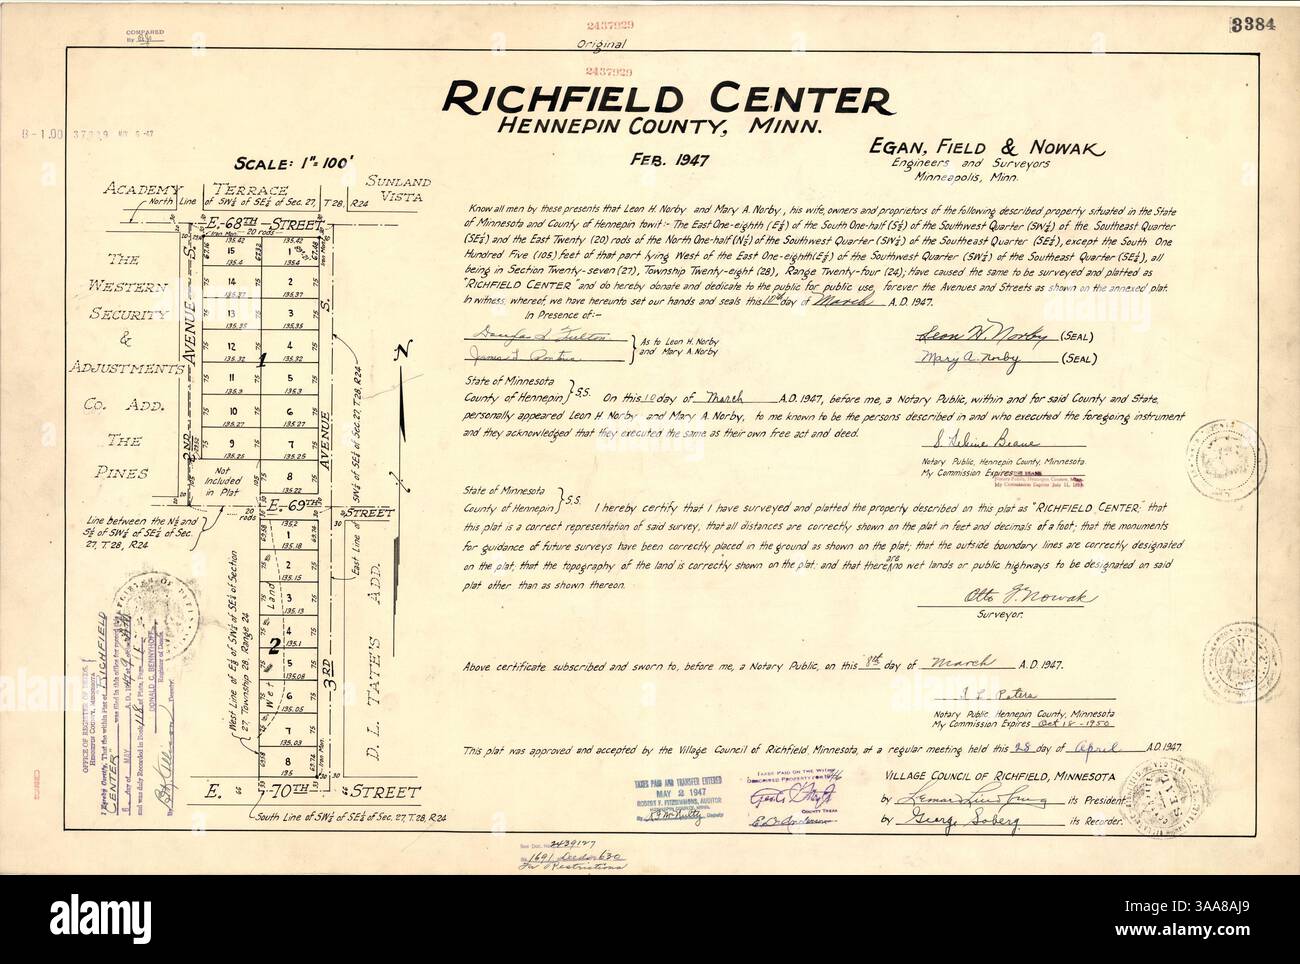 COMPARED
By
2437929
Original
3384
2437929
RICHFIELD CENTER
HENNEPIN COUNTY, MINN.
FEB. 1947
EGAN, FIELD & NOWAK
Engineers and Surveyors
Minneapolis, Minn.
B-1.00
SCALE: 1"=100'
ACADEMY TERRACE
SUNLAND VISTA
North Line of SW¼ of SE¼ of Sec. 27, T28, R24
E. 68TH STREET
20 rods
THE
WESTERN
SECURITY
&
ADJUSTMENTS
CO. ADD.
THE
PINES
2ND AVENUE S.
3RD AVENUE S.
135.42 135.42
15 1
135.4 135.4
14 2
135.37 135.37
13 3
135.35 135.35
12 4
135.32 135.32
1
11 5
135.3 135.3
10 6
135.27 135.27
9 7
135.25 135.25
Not Included in Plat
8
135.22
E. 69TH STREET
20 rods
135.2
1
135.18
2
135.15
3
135.13
4
135.1
2
5
135.08
6
135.05
7
135.03
8
135.
Wet Land
Line between the N½ and
S½ of SW¼ of SE¼ of Sec.
27, T28, R24
East Line of SW¼ of SE¼ of Sec. 27, T28, R24
West Line of E⅛ of SW¼ of SE¼ of Section
27, Township 28, Range 24
D. L. TATE'S ADD.
N
E. 70TH STREET
South Line of SW¼ of SE¼ of Sec. 27, T.28, R.24
Know all men by these presents that Leon H. Norby and Mary A. Norby, his wife, owners and proprietors of the following described property situated in the State
of Minnesota and County of Hennepin towit:- The East One-eighth (E⅛) of the South One-half (S½) of the Southwest Quarter (SW¼) of the Southeast Quarter
(SE¼) and the East Twenty (20) rods of the North One-half (N½) of the Southwest Quarter (SW¼) of the Southeast Quarter (SE¼), except the South One
Hundred Five (105) feet of that part lying West of the East One-eighth (E⅛) of the Southwest Quarter (SW¼) of the Southeast Quarter (SE¼), all
being in Section Twenty-seven (27), Township Twenty-eight (28), Range Twenty-four (24); Have caused the same to be surveyed and platted as
"RICHFIELD CENTER" and do hereby donate and dedicate to the public for public use, forever the Avenues and Streets as shown on the annexed plat.
In witness, whereof, we have hereunto set our hands and seals this 10th day of March A.D. 1947.
In Presence of:-
Douglas L Fulton
As to Leon H. Norby
and Mary A. Norby
Leon H. Norby (SEAL)
Mary A. Norby (SEAL)
State of Minnesota
County of Hennepin S.S. On this 10 day of March A.D. 1947, before me, a Notary Public, within and for said County and State,
personally appeared Leon H. Norby and Mary A. Norby, to me known to be the persons described in and who executed the foregoing instrument
and they acknowledged that they executed the same as their own free act and deed.
Notary Public, Hennepin County, Minnesota
My Commission Expires
State of Minnesota
County of Hennepin S.S. I hereby certify that I have surveyed and platted the property described on this plat as "RICHFIELD CENTER"; that
this plat is a correct representation of said survey, that all distances are correctly shown on the plat in feet and decimals of a foot; that the monuments
for guidance of future surveys have been correctly placed in the ground as shown on the plat; that the outside boundary lines are correctly designated
on the plat; that the topography of the land is correctly shown on the plat; and that there are no wet lands or public highways to be designated on said
plat other than as shown thereon.
Otto F. Nowak
Surveyor.
Above certificate subscribed and sworn to, before me, a Notary Public, on this 8th day of March A.D. 1947.
Peters
Notary Public Hennepin County, Minnesota
My Commission Expires Oct 18-1950
This plat was approved and accepted by the Village Council of Richfield, Minnesota, at a regular meeting held this 28 day of April A.D. 1947.
VILLAGE COUNCIL OF RICHFIELD, MINNESOTA
by its President
by George Soberg its Recorder.
TAXES PAID AND TRANSFER ENTERED
MAY 2 1947
ROBERT F. FITZSIMMONS, AUDITOR
HENNEPIN COUNTY, MINN.
By Deputy
TAXES PAID ON THE WITHIN
DESCRIBED PROPERTY FOR 1946
COUNTY TREAS.
OFFICE OF REGISTER OF DEEDS
HENNEPIN COUNTY, MINNESOTA
RICHFIELD CENTER
DONALD C. BENNYHOFF
Register of Deeds
See Doc. No. 2439127
1691 Deeds 630
For Restrictions
alamy
Image ID: 3AA8AJ9
www.alamy.com